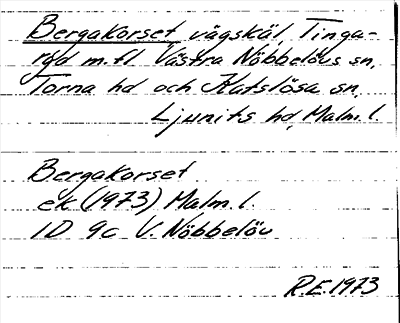 Bergakorset, vägskäl, Tinga-
ryd m.fl. Västra Nöbbelövs sn,
Torna hd och Katslösa sn,
Ljunits hd, Malm.l.
Bergakorset
ek (1973) Malm.l.
1D 9c V. Nöbbelöv
R.E. 1973